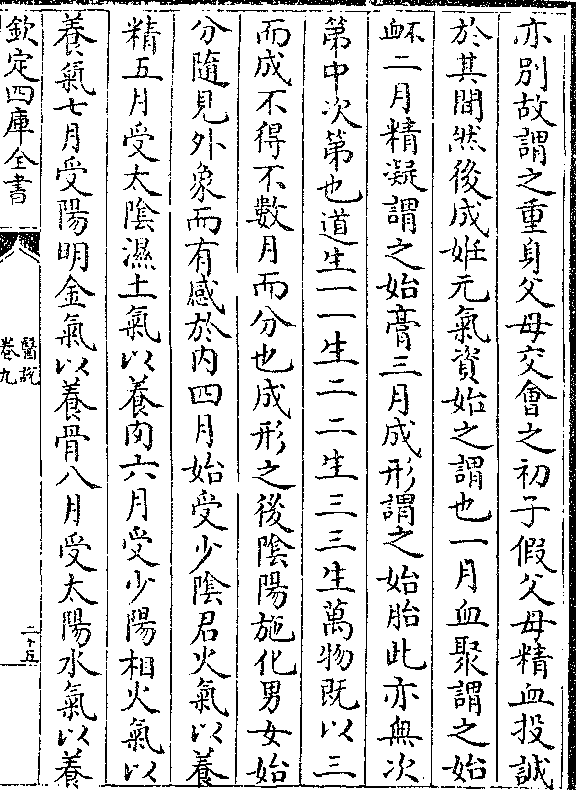 亦别故謂之重身父母交會之初子假父母精血投誠
於其間然後成姙元氣資始之謂也一月血聚謂之始
衃二月精凝謂之始膏三月成形謂之始胎此亦無次
第中次第也道生一一生二二生三三生萬物既以三
而成不得不數月而分也成形之後陰陽施化男女始
分隨見外象而有感於内四月始受少陰君火氣以養
精五月受太陰濕土氣以養肉六月受少陽相火氣以
養氣七月受陽明金氣以養骨八月受太陽水氣以養
欽定四庫全書
醫説
卷九
二十五